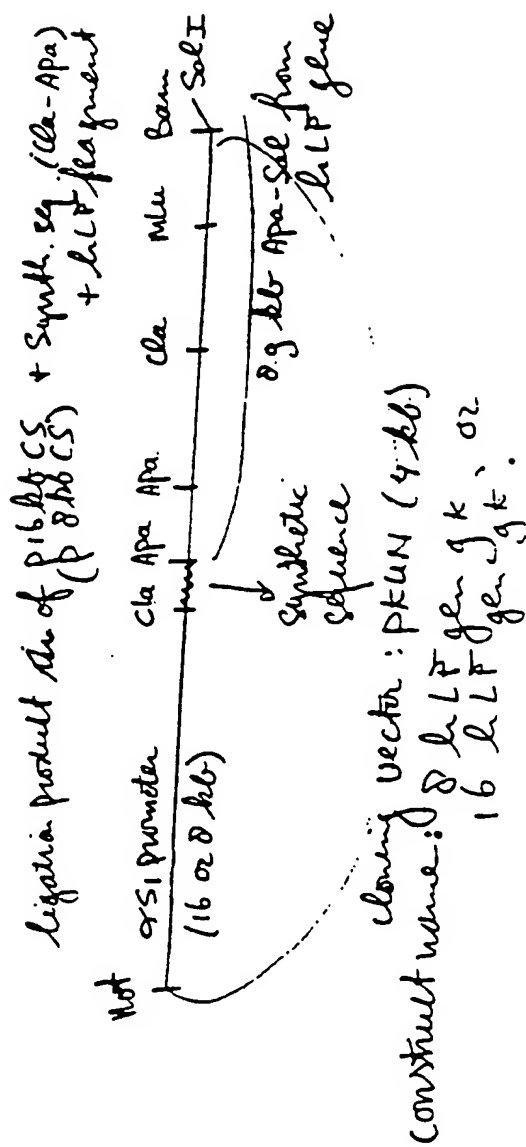 ligation product of p16kb CS + Synth. seq. (Cla-Apa)
(p 8kb CS) + hLF fragment
Not Cla Apa Apa Cla Mlu Bam
Sal I
αS1 promoter
(16 or 8 kb)
Synthetic
sequence
8.9 kb Apa-Sal from
hLF gene
cloning vector: pKUN (4 kb)
construct name: 8 hLF gen 9k, or
16 hLF gen 9k.